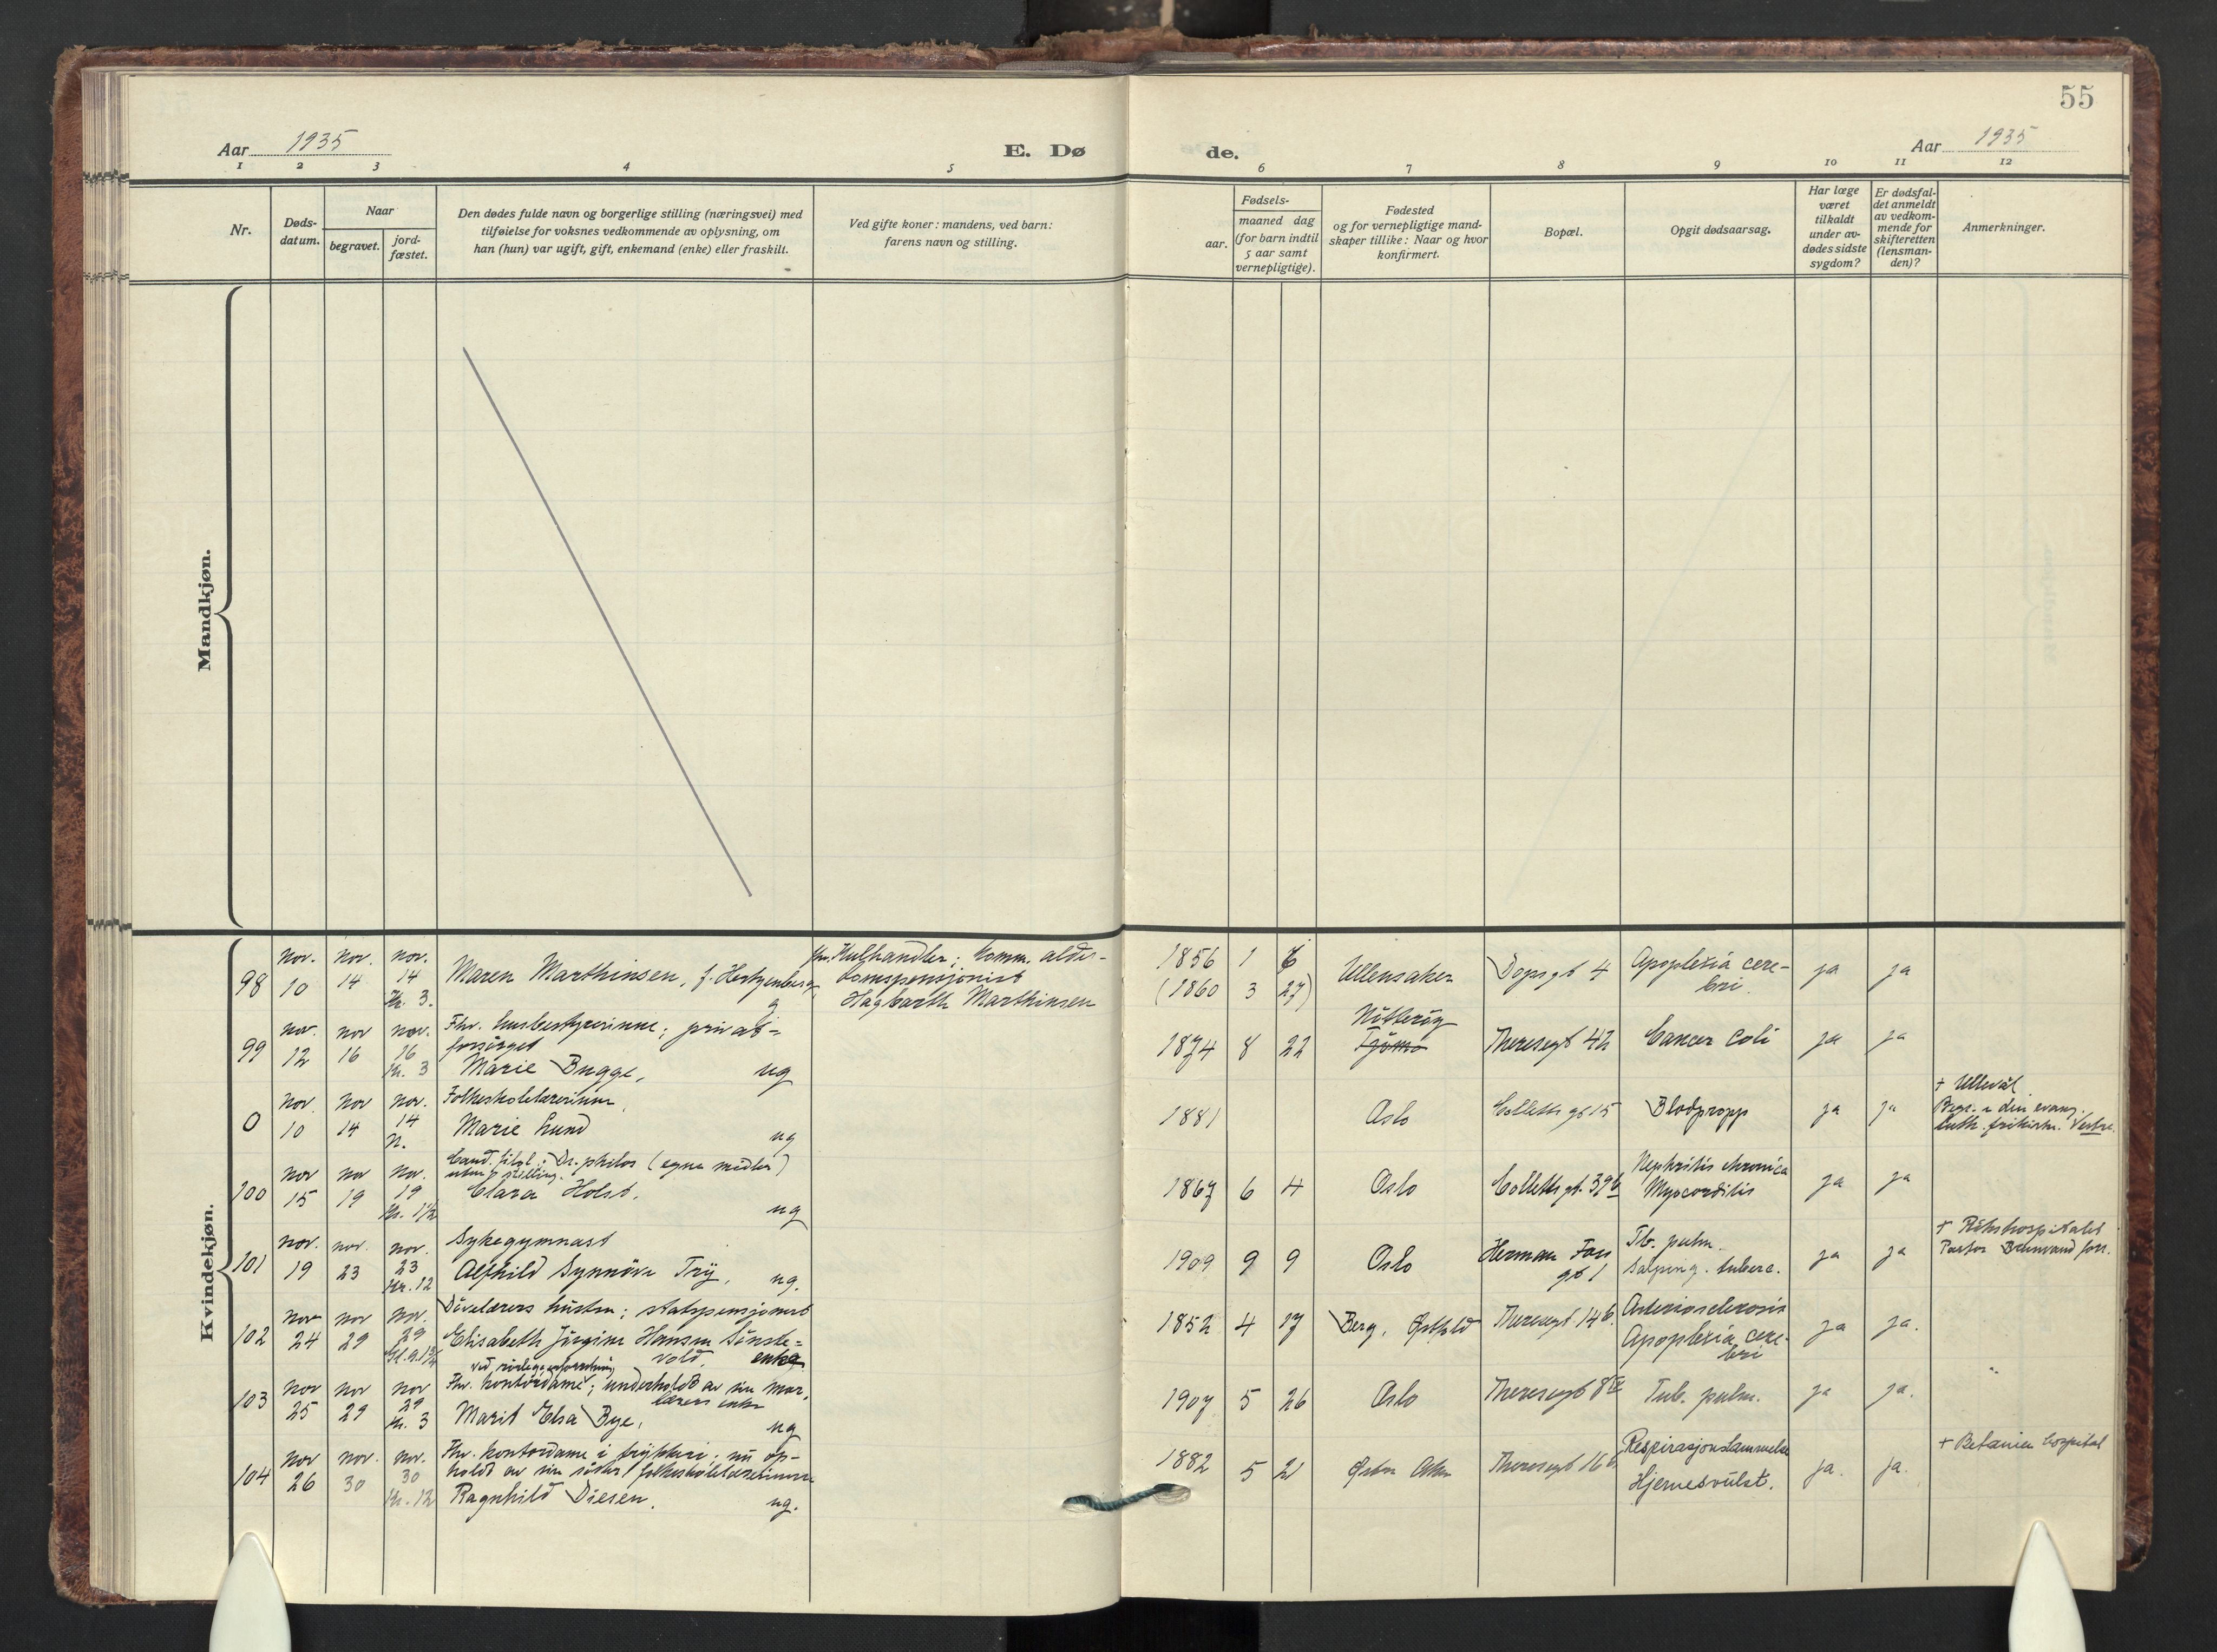 55
Aar 1935
E. Dø
de.
Aar 1935
1 2 3 4 5
6 7 8 9 10 11 12
Nr.
Døds-
datum.
Naar
begravet.
jord-
fæstet.
Den dødes fulde navn og borgerlige stilling (næringsvei) med
tilføielse for voksnes vedkommende av oplysning, om
han (hun) var ugift, gift, enkemand (enke) eller fraskilt.
Ved gifte koner: mandens, ved barn:
farens navn og stilling.
Fødsels-
aar.
maaned dag
(for barn indtil
5 aar samt
vernepligtige).
Fødested
og for vernepligtige mand-
skaper tillike: Naar og hvor
konfirmert.
Bopæl.
Opgit dødsaarsag.
Har læge
været
tilkaldt
under av-
dødes sidste
sygdom?
Er dødsfal-
det anmeldt
av vedkom-
mende for
skifteretten
(lensman-
den)?
Anmerkninger.
Mandkjøn.
Kvindekjøn.
98
nov. 10
nov. 14
nov. 14
Kr. 3.
Maren Marthinsen, f. Hertzenberg,
g
fhv. Kulhandler; komm. alder-
domspensjonist
Hagbarth Marthinsen
1856 1 6
(1860 3 27)
Ullensaker
Dopsgt 4
Apoplexia cere-
bri.
ja
ja
99
nov. 12
nov 16
nov. 16
Kr. 3
Fhv. husbestyrerinne; privat-
forsörget
Marie Bugge,
ug
1874 8 22
Nötteröy
Tjömö
Theresegt 42
Cancer coli
ja
ja
0
nov. 10
nov 14
nov. 14
n.
Folkeskolelærerinne,
Marie Lund
ug
1881
Oslo
Colletts gt 15
Blodpropp
ja
ja
+ Ullevål
Begr. v den evang.
luth. frikirke. Vestre.
100
nov 15
nov 19
nov. 19
Kr. 1½
Cand. filol.; Dr. philos (egne midler)
uten stilling.
Clara Holst.
ug
1867 6 4
Oslo
Colletts gt. 39b
Nephritis chronica
Myocarditis
ja
ja
101
nov. 19
nov. 23
nov. 23
Kr. 12
Sykegymnast
Alfhild Synnöve Try,
ug.
1909 9 9
Oslo
Herman Foss
gt 1
Tb. pulm.
Salping. tuberc.
ja
ja
+ Rikshospitalet
Pastor
102
nov 24
nov 29
nov. 29
Dövelærers hustru; statspensjonist
Elisabeth Jörgine Hansen Sönste-
vold,
enke
1852 4 17
Berg, Østfold
Theresegt 14b.
Arteriosclerosis
Apoplexia cere-
bri
ja
ja.
103
nov 25
nov 29
nov 29
Kr. 3
Fhv. kontordame; underholdt av sin mor,
lærers enke
Marit Elsa Bye,
ug
1907 5 26
Oslo
Theresegt 8 IV
Tub. pulm.
ja
ja.
104
nov 26
nov. 30
nov. 30
Kr. 12
Fhv. kontordame i trykkeri; nu op-
holdt av sin söster, folkeskolelærerinne
Ragnhild Diesen,
ug.
1882 5 21
Østre Aker
Theresegt 16b
Respirasjonslammelse
Hjernesvulst.
ja.
ja.
+ Betanien hospital